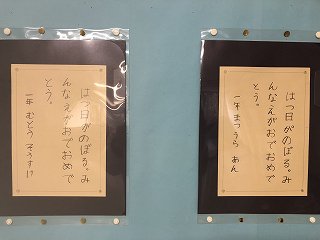 はつ日がのぼる。み
んなえがおでおめで
とう。
一年 まつうら あん
はつ日がのぼる。み
んなえがおでおめで
とう。
一年 むとう そうすけ